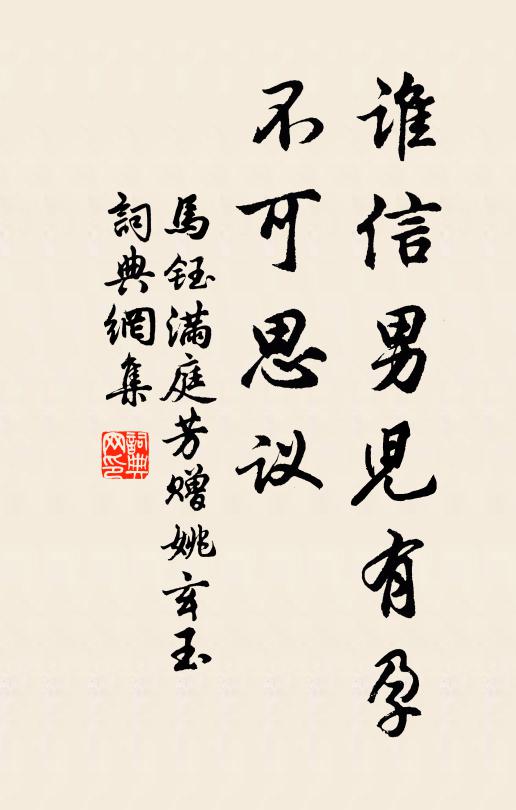 谁信男児有孕
不可思议
馬鈺满庭芳赠姚玄玉
詞典網集
詞典网印